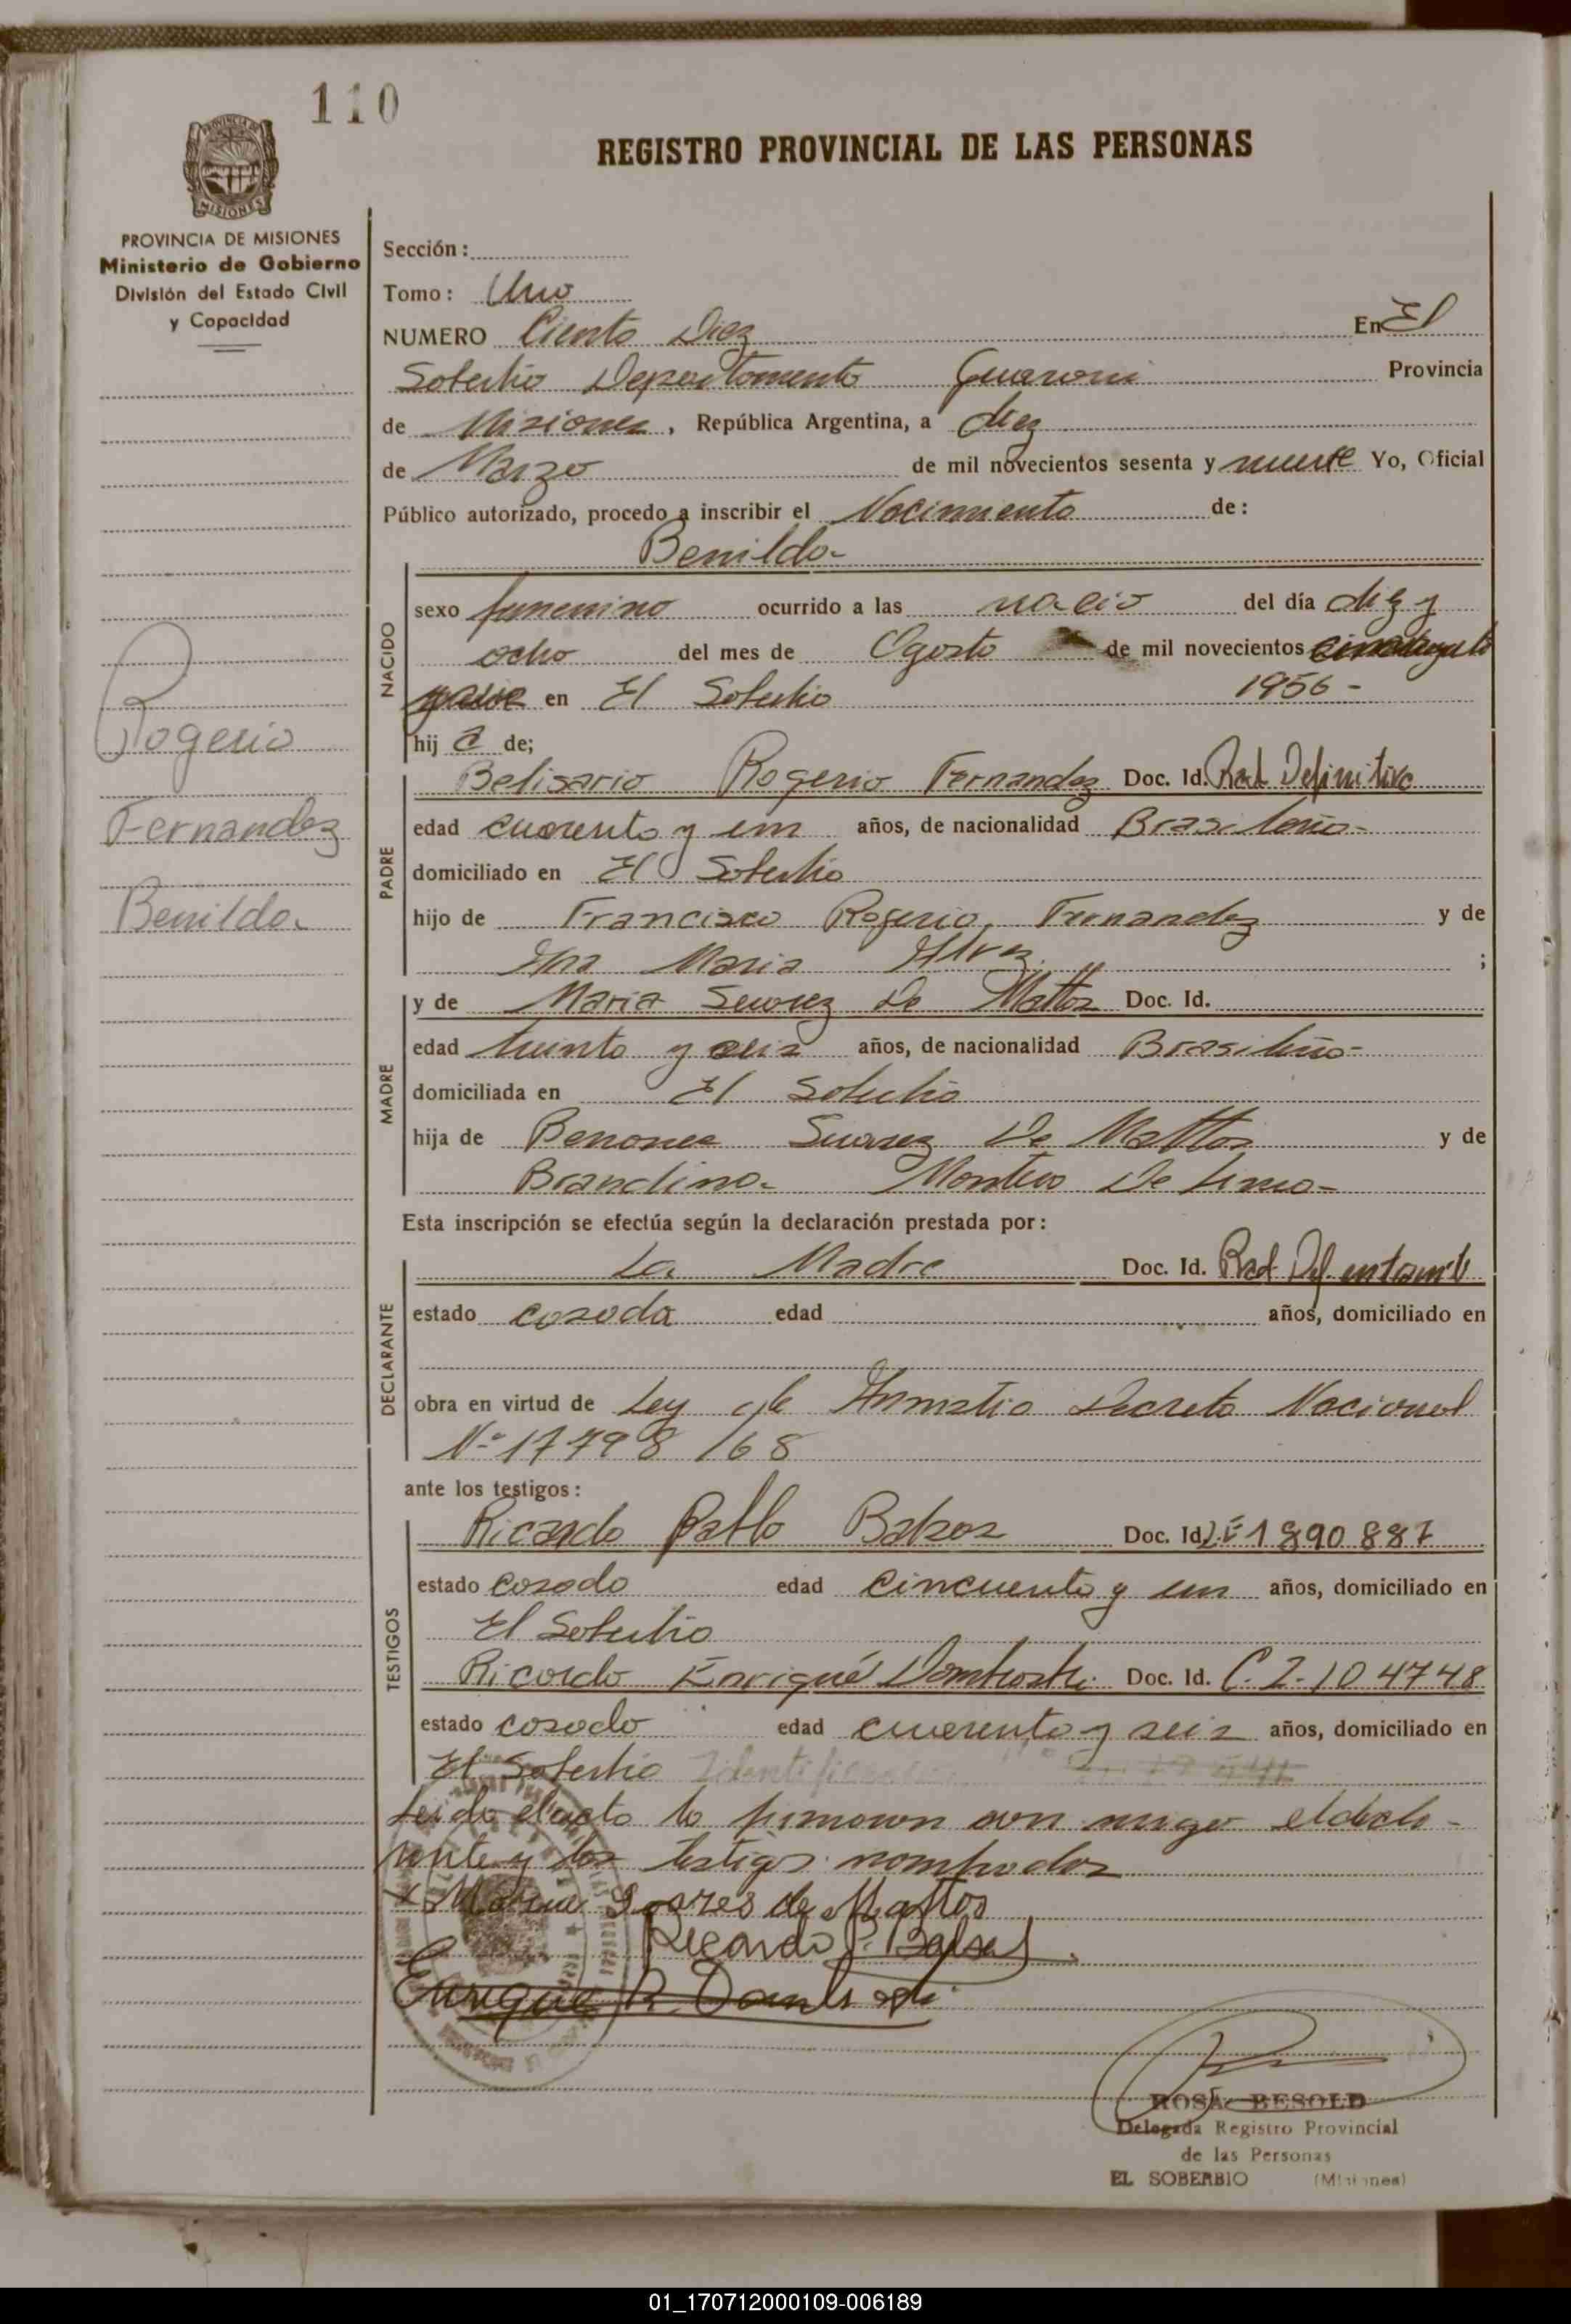 110
REGISTRO PROVINCIAL DE LAS PERSONAS
PROVINCIA DE MISIONES
MISIONES
PROVINCIA DE MISIONES
Ministerio de Gobierno
División del Estado Civil
y Capacidad
Rogerio
Fernandez
Benilda
Sección:
Tomo: Uno
NUMERO Ciento Diez En El
Soberbio Departamento Guarani Provincia
de Misiones, República Argentina, a diez
de Marzo de mil novecientos sesenta y nueve Yo, Oficial
Público autorizado, procedo a inscribir el Nacimiento de:
Benilda-
NACIDO
sexo femenino ocurrido a las nacio del día diez y
ocho del mes de Agosto de mil novecientos
en El Soberbio 1956-
hij a de;
PADRE
Belisario Rogerio Fernandez Doc. Id. Rad. Definitiva
edad cuarenta y un años, de nacionalidad Brasileña-
domiciliado en El Soberbio
hijo de Francisco Rogerio Fernandez y de
Ana Maria Alvez ;
MADRE
y de Maria Suarez De Mattos Doc. Id.
edad treinta y seis años, de nacionalidad Brasileña-
domiciliada en El Soberbio
hija de Benones Suarez De Mattos y de
Brandina Monteiro De Lima-
Esta inscripción se efectúa según la declaración prestada por:
DECLARANTE
La Madre Doc. Id. Rad. Def. en tramite
estado casada edad años, domiciliado en
obra en virtud de Ley de Amnistia Decreto Nacional
Nº 17798/68
ante los testigos:
TESTIGOS
Ricardo Pablo Balsas Doc. Id. L.E 1890887
estado casado edad cincuenta y un años, domiciliado en
El Soberbio
Ricardo Enrique Dombroski Doc. Id. C.I. 104748
estado casado edad cuarenta y seis años, domiciliado en
El Soberbio
Leida el acta la firmaron con migo el decla-
rante y los testigos nombrados
x Maria Soares de Mattos
Ricardo P. Balsas
Enrique R. Dombroski
ROSA BESOLD
Delegada Registro Provincial
de las Personas
EL SOBERBIO (Misiones)
01_170712000109-006189